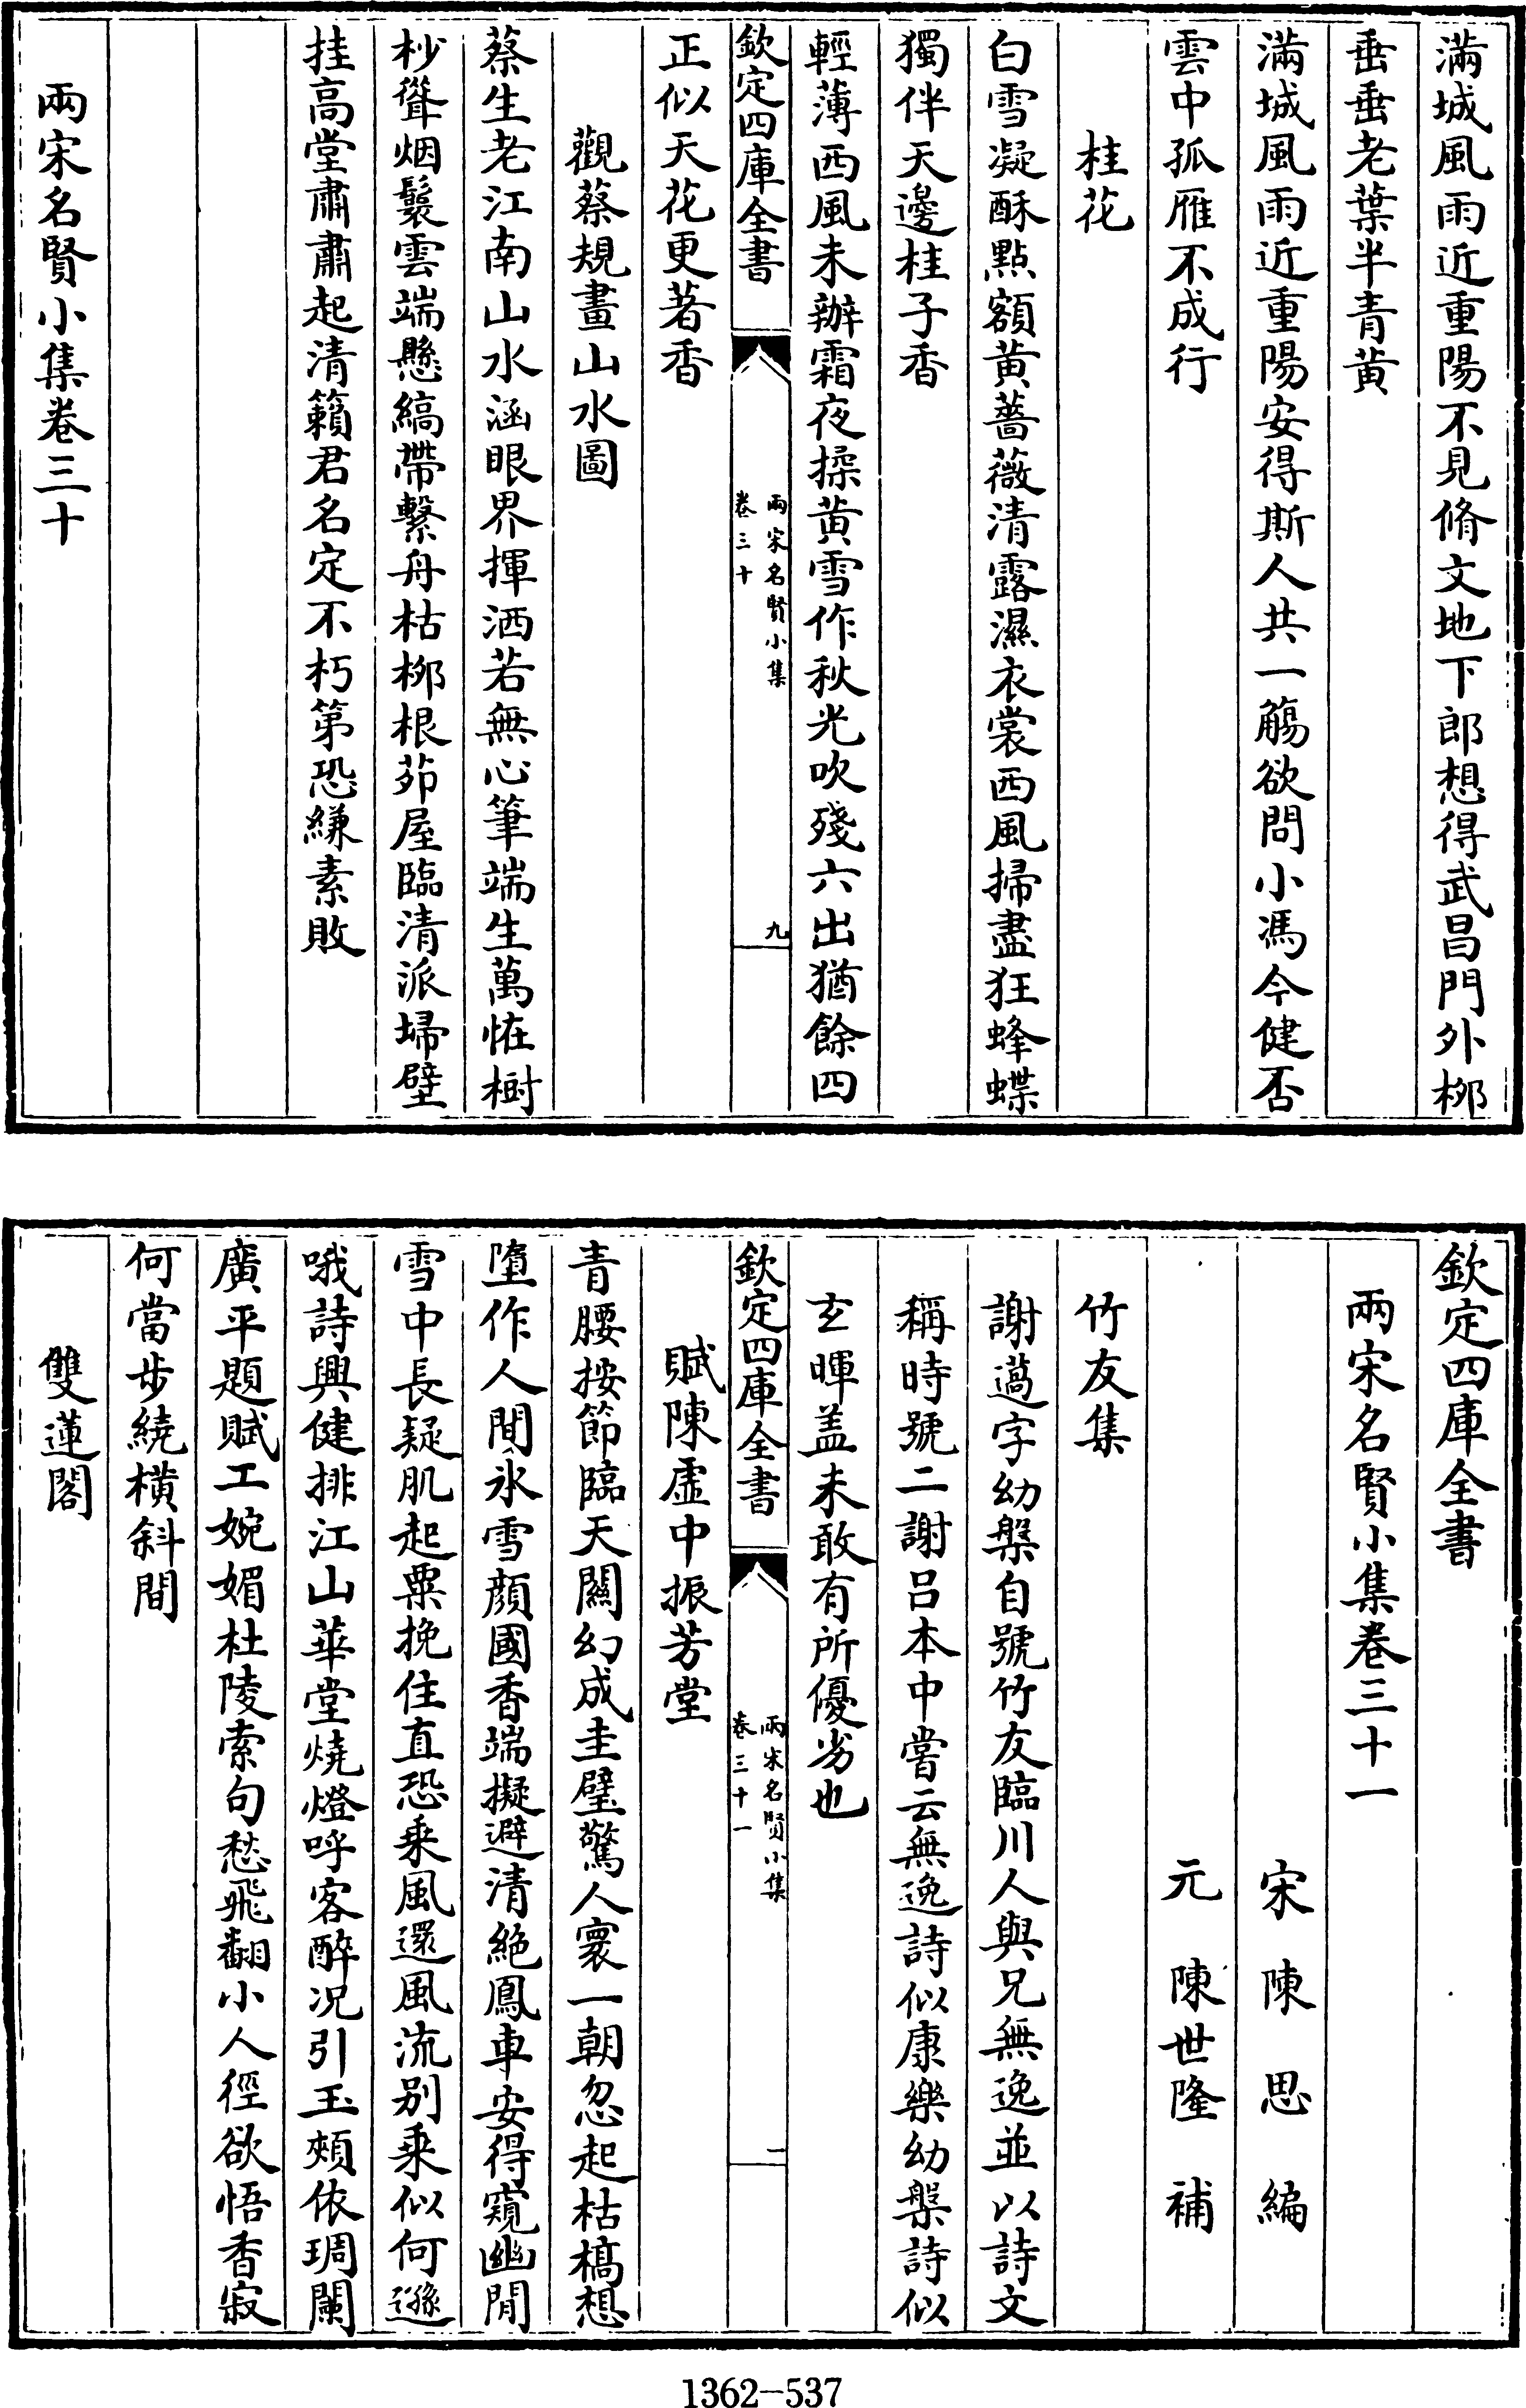 滿城風雨近重陽不見脩文地下郎想得武昌門外栁
垂垂老葉半青黄
滿城風雨近重陽安得斯人共一觴欲問小馮今健否
雲中孤雁不成行
桂花
白雪凝酥點額黄薔薇清露濕衣裳西風掃盡狂蜂蝶
獨伴天邊桂子香
輕薄西風未辦霜夜揉黄雪作秋光吹殘六出猶餘四
欽定四庫全書
兩宋名賢小集
卷三十
九
正似天花更著香
觀蔡規畫山水圖
蔡生老江南山水涵眼界揮洒若無心筆端生萬恠樹
杪聳烟鬟雲端懸縞帶繫舟枯栁根茆屋臨清派埽壁
挂高堂肅肅起清籟君名定不朽第恐縑素敗
兩宋名賢小集卷三十
欽定四庫全書
兩宋名賢小集卷三十一
宋陳思編
元陳世隆補
竹友集
謝薖字幼槃自號竹友臨川人與兄無逸並以詩文
稱時號二謝吕本中嘗云無逸詩似康樂幼槃詩似
玄暉盖未敢有所優劣也
欽定四庫全書
兩宋名賢小集
卷三十一
一
賦陳虚中振芳堂
青腰按節臨天闗幻成圭璧驚人寰一朝忽起枯槁想
墮作人間氷雪顔國香端擬避清絶鳳車安得窺幽閒
雪中長疑肌起粟挽住直恐乗風還風流别乗似何遜
哦詩興健排江山華堂燒燈呼客醉况引玉頰依琱闌
廣平題賦工婉媚杜陵索句愁飛翻小人徑欲悟香寂
何當步繞横斜間
雙蓮閣
1362-537